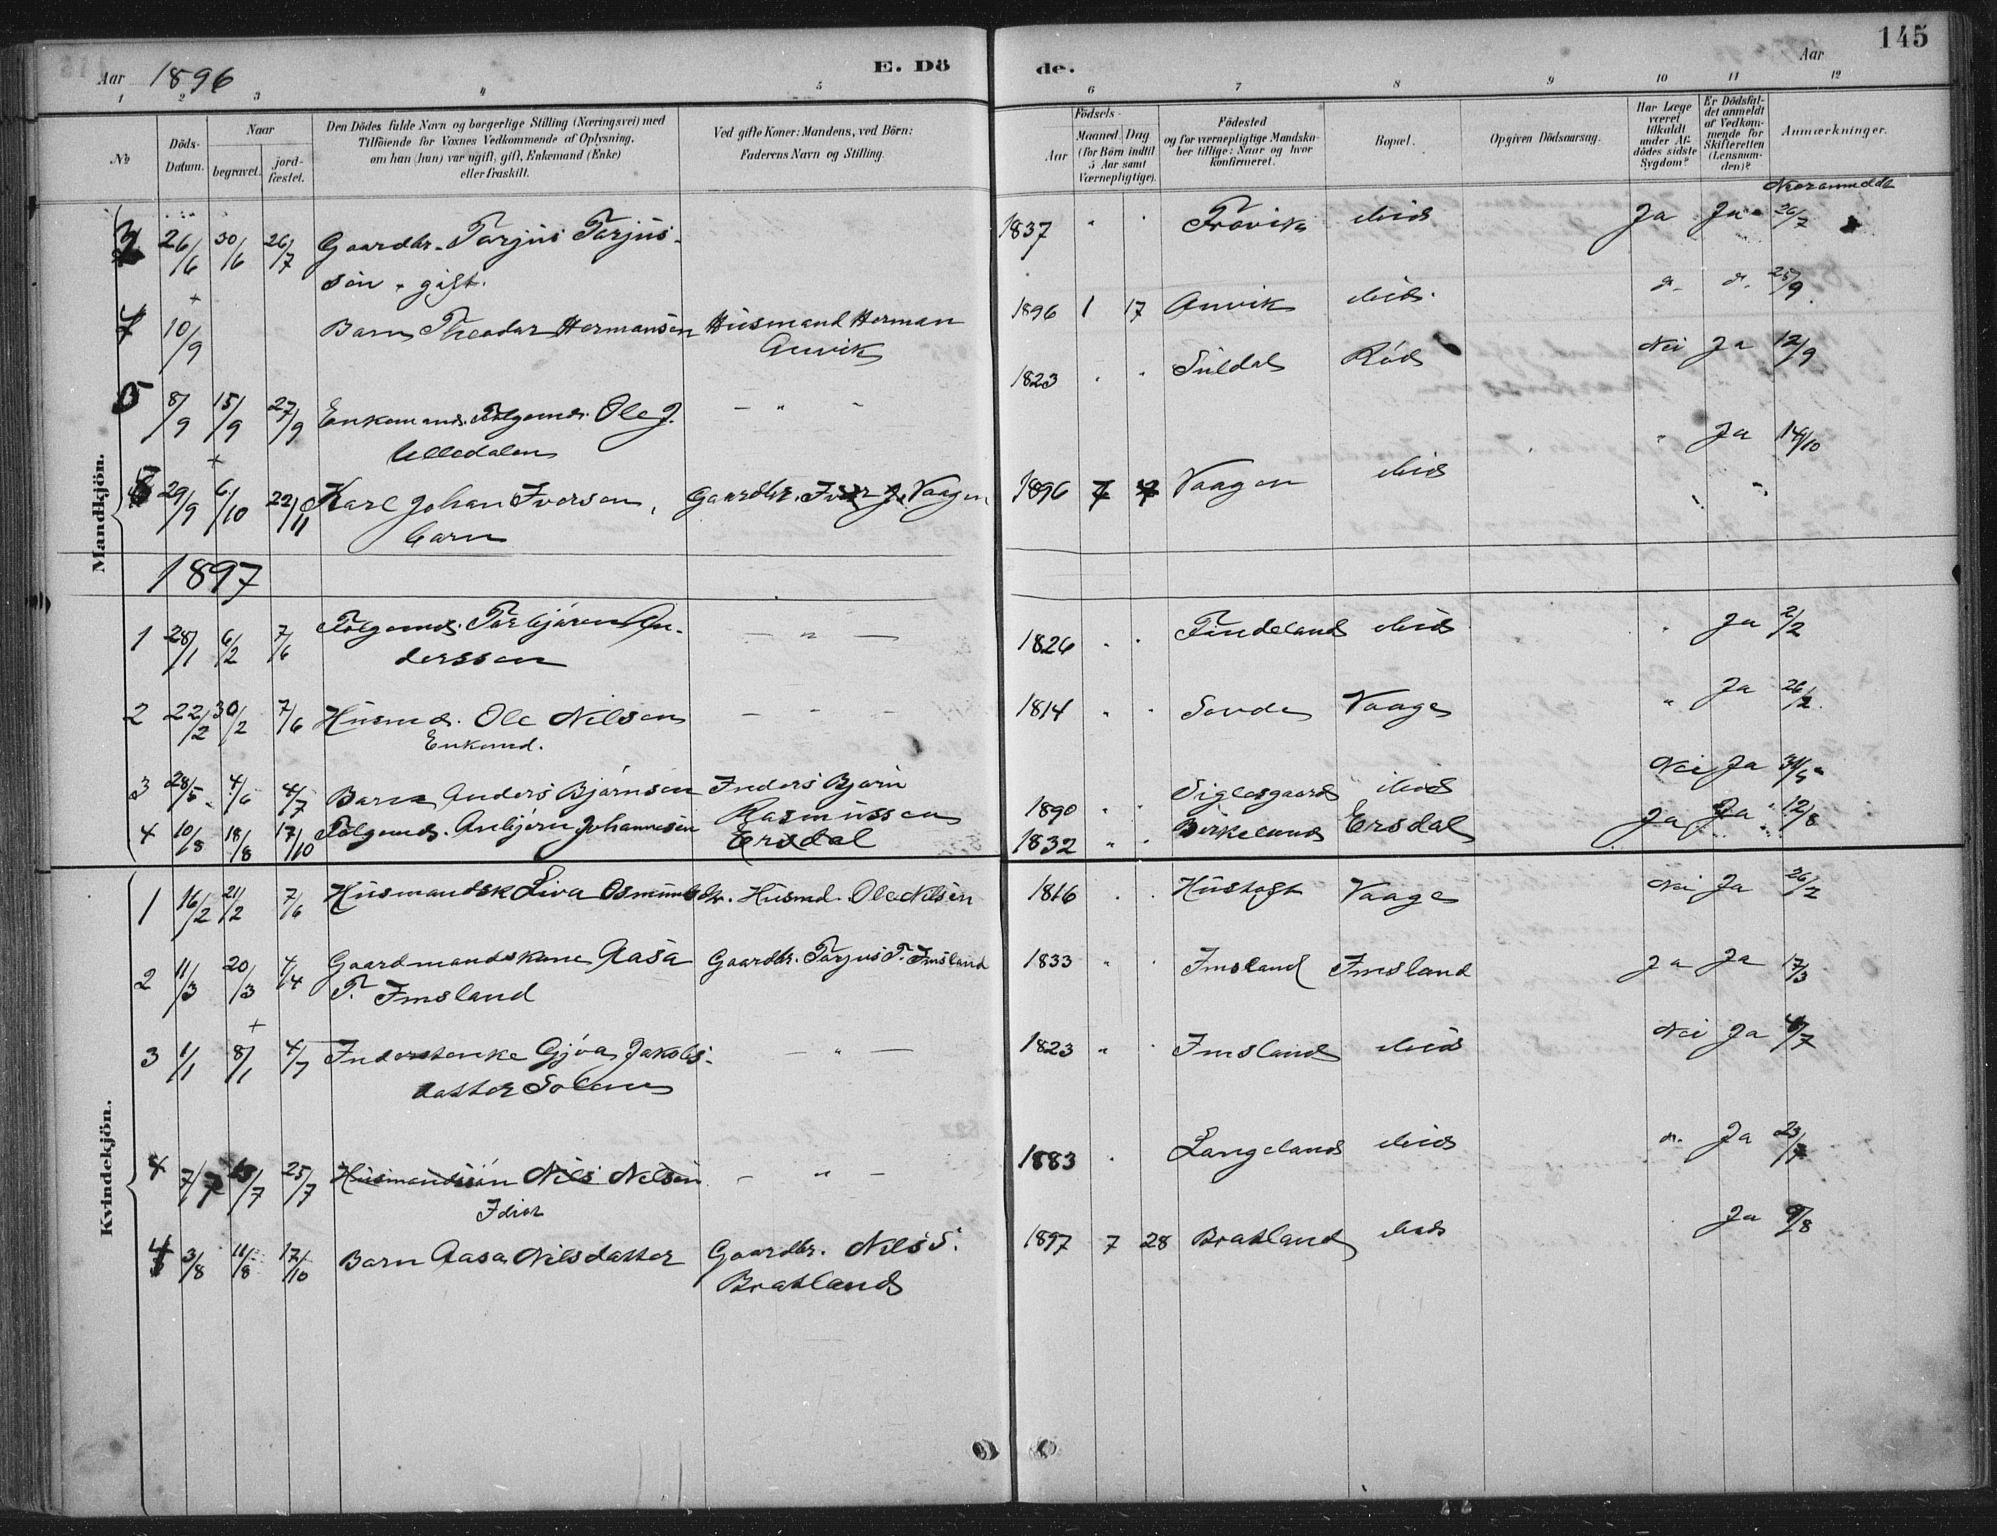 145
Aar 1896 E. Dö de. Aar
1 2 3 4 5 6 7 8 9 10 11 12
No Döds-Datum. Naar begravet. jord-fæstet.
Den Dödes fulde Navn og borgerlige Stilling (Næringsvei) med
Tilföiende for Voxnes Vedkommende af Oplysning,
om han (hun) var ugift, gift, Enkemand (Enke)
eller fraskilt.
Ved gifte Koner: Mandens, ved Börn:
Faderens Navn og Stilling.
Födsels-
Aar Maaned Dag
(for Börn indtil
5 Aar samt
Værnepligtige).
Födested
og for værnepligtige Mandska-
ber tillige: Naar og hvor
konfirmeret.
Bopæl.
Opgiven Dödsaarsag.
Har Læge
været
tilkaldt
under Af-
dödes sidste
Sygdom?
Er Dödsfal-
det anmeldt
af Vedkom-
mende for
Skifteretten
(Lensman-
den)?
Anmærkninger.
Mandkjön.
3 26/6 30/6 26/7 Gaardbr. Tarjus Tarjus- 1837 " " Frovik ibid Ja Ja 26/7
sön. gift.
4 10/9 + Barn Theodor Hermansen Husmand Herman 1896 1 17 Anvik ibid. 25/9
Anvik
5 8/9 15/9 27/9 Enkemand. Fölgemd. Ole J. — " — 1823 " " Suldal Röd Nei Ja 12/9
Ulledalen
29/9 6/10 22/11 Karl Johan Iversen, Gaardbr. Iver J. Vaagen 1896 7 Vaagen ibid " Ja 14/10
barn
1897
1 28/1 6/2 7/6 Fölgemd. Torbjören An- — " — 1826 " " Findeland ibid " Ja 2/2
derssen
2 22/2 30/2 7/6 Husmd. Ole Nilsen — " — 1814 " " Sovde Vaage " Ja 26/2
Enkemd.
3 28/5 4/6 4/7 Barn Anders Bjørnsen Inders Bjørn 1890 " " Siglesgaard ibid Nei Ja
Rasmussen
4 10/8 18/8 17/10 Fölgemd. Anbjörn Johannesen Ersdal 1832 " " Birkeland Ersdal Ja Ja 12/8
Kvindekjön.
1 16/2 21/2 7/6 Husmandsk Liva Osmundsdtr. Husmd. Ole Nilsen 1816 " " Hustoft Vaage Nei Ja 26/2
2 11/3 20/3 4/4 Gaardmandskone Aasa Gaardbr. Tarjus T. Imsland 1833 " " Imsland Imsland Ja Ja 17/3
T. Imsland
3 1/1 8/1 + 4/7 Inderstenke Gjöa Jakobs- — " — 1823 " " Imsland ibid Nei Ja
datter Solem
4 7/7 25/7 Husmandssön Nils Nelsen — " — 1883 " Langeland ibid Ja 23/7
Idiot
4 3/8 11/8 17/10 Barn Aasa Nilsdatter Gaardbr. Nils S. 1897 7 28 Bratland ibid Ja 9/8
Bratland